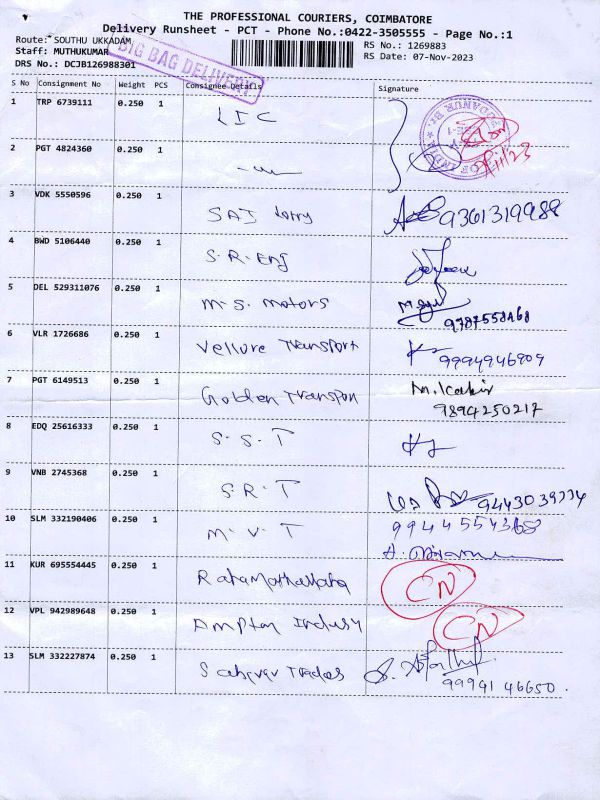 THE PROFESSIONAL COURIERS, COIMBATORE
Delivery Runsheet - PCT - Phone No.:0422-3505555 - Page No.:1
Route: SOUTHU UKKADAM
RS No.: 1269883
Staff: MUTHUKUMAR
RS Date: 07-Nov-2023
DRS No.: DCJB126988301
BIG BAG DELIVERY
S No Consignment No Weight PCS Consignee Details Signature
1 TRP 6739111 0.250 1 LIC
2 PGT 4824360 0.250 1
3 VDK 5550596 0.250 1 SAI Lorry 9361319988
4 BWD 5106440 0.250 1 S.R. Eng
5 DEL 529311076 0.250 1 M.S. Motors
6 VLR 1726686 0.250 1 Vellore Transport 9994946909
7 PGT 6149513 0.250 1 Golden Transport M. Kabir
9894250217
8 EDQ 25616333 0.250 1 S.S.T
9 VNB 2745368 0.250 1 S.R.T
10 SLM 332190406 0.250 1 M.V.T
11 KUR 695554445 0.250 1 CN
12 VPL 942989648 0.250 1 CN
13 SLM 332227874 0.250 1